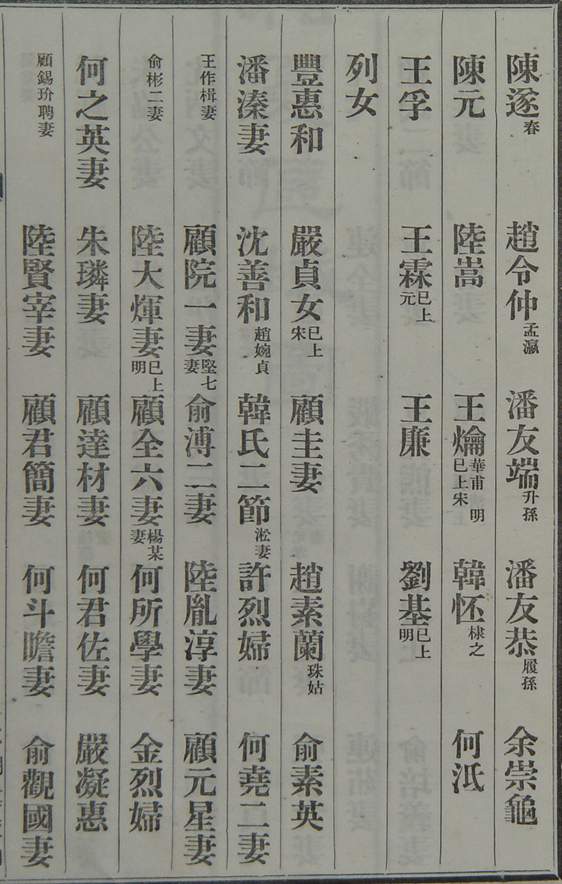 陳遂春 趙令仲孟瀛 潘友端升孫 潘友恭履孫 余崇龜
陳元 陸嵩 王爚華甫 明已上宋 韓怀棣之 何汦
王孚 王霖已上元 王廉 劉基已上明
列女
豐惠和 嚴貞女已上宋 顧圭妻 趙素蘭珠姑 俞素英
潘溱妻 沈善和趙婉貞 韓氏二節淞妻 許烈婦 何堯二妻
王作楫妻 顧院一妻堅七妻 俞溥二妻 陸胤淳妻 顧元星妻
俞彬二妻 陸大煇妻已上明 顧全六妻楊某妻 何所學妻 金烈婦
何之英妻 朱璘妻 顧達材妻 何君佐妻 嚴凝惠
顧錫玠聘妻 陸賢宰妻 顧君簡妻 何斗瞻妻 俞觀國妻